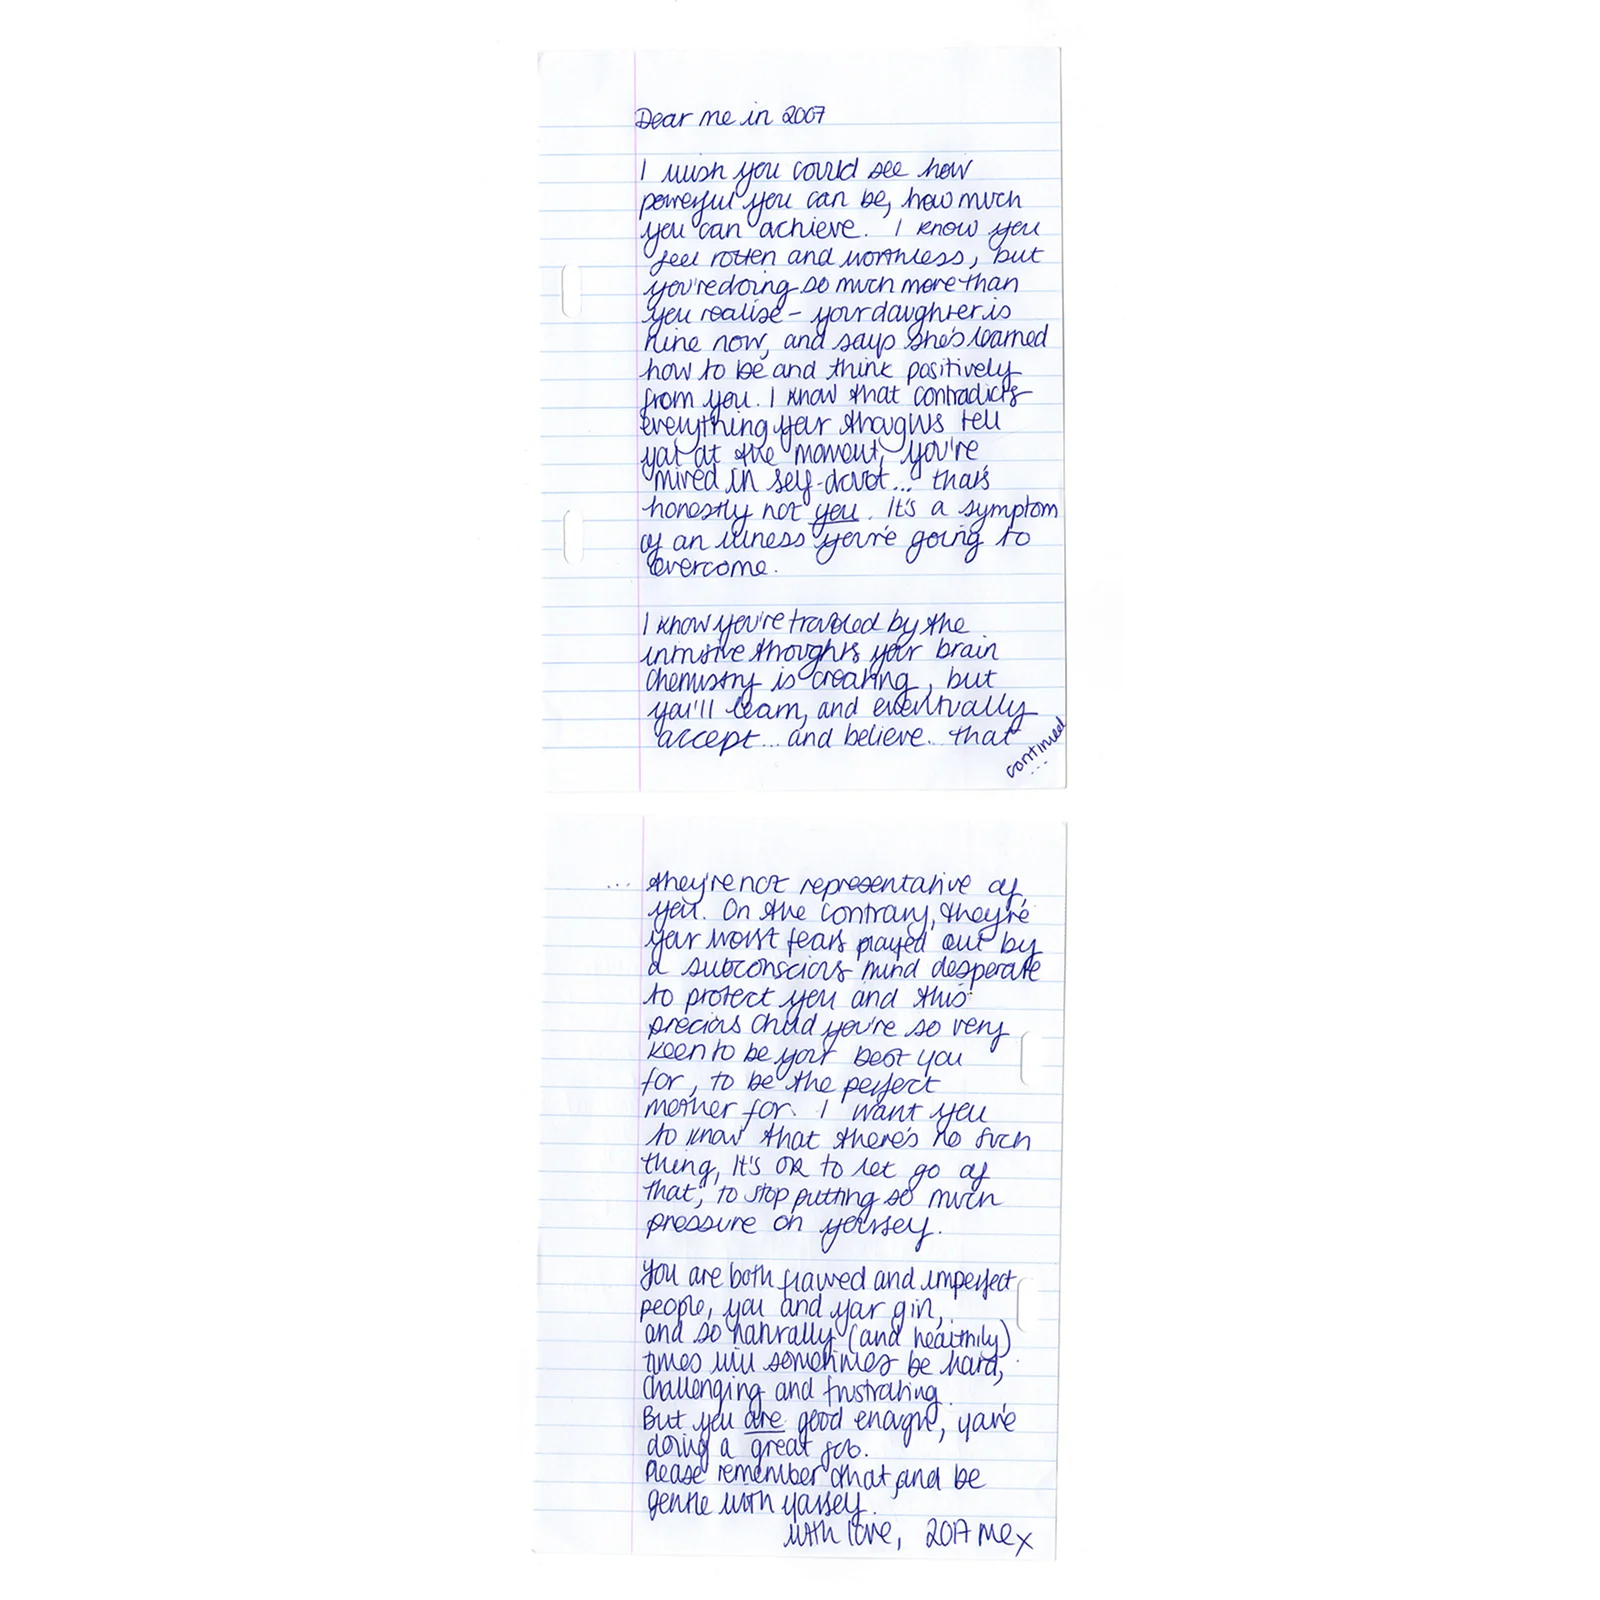 Dear me in 2007
I wish you could see how
powerful you can be, how much
you can achieve. I know you
feel rotten and worthless, but
you're doing so much more than
you realise - your daughter is
nine now, and says she's learned
how to be and think positively
from you. I know that contradicts
everything your thoughts tell
you at the moment, you're
mired in self-doubt... that's
honestly not you. It's a symptom
of an illness you're going to
overcome.
I know you're troubled by the
intrusive thoughts your brain
chemistry is creating, but
you'll learn, and eventually
accept... and believe.. that
continued
...
... they're not representative of
you. On the contrary, they're
your worst fears played out by
a subconscious mind desperate
to protect you and this
precious child you're so very
keen to be your best you
for, to be the perfect
mother for. I want you
to know that there's no such
thing, it's OK to let go of
that, to stop putting so much
pressure on yourself.
You are both flawed and imperfect
people, you and your girl,
and so naturally (and healthily)
times will sometimes be hard,
challenging and frustrating.
But you are good enough, you're
doing a great job.
Please remember that and be
gentle with yourself.
With love, 2017 me x